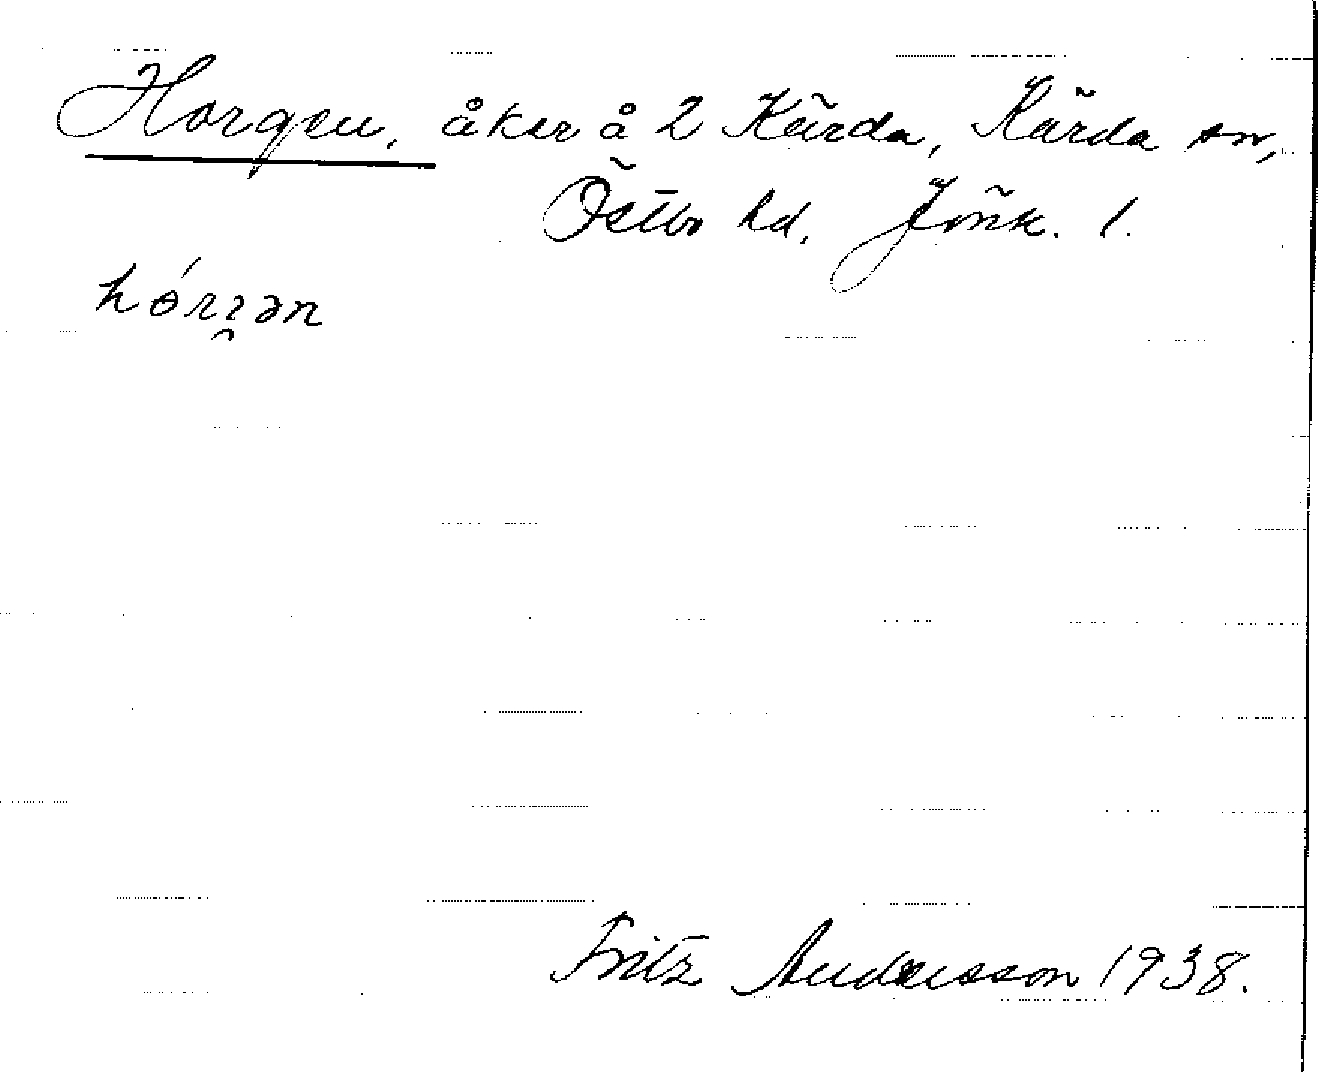 Horgen, åker å 2 Kärda, Kärda sn,
Östbo hd. Jönk. l.
Fritz Andersson 1938.